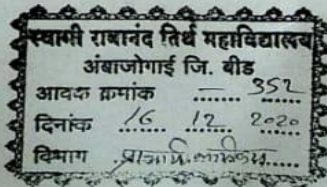 स्वामी रामानंद तिर्थ महाविद्यालय
अंबाजोगाई जि. बीड
आवक क्रमांक — 352
दिनांक 16 12 2020
विभाग प्राचार्य कार्यालय